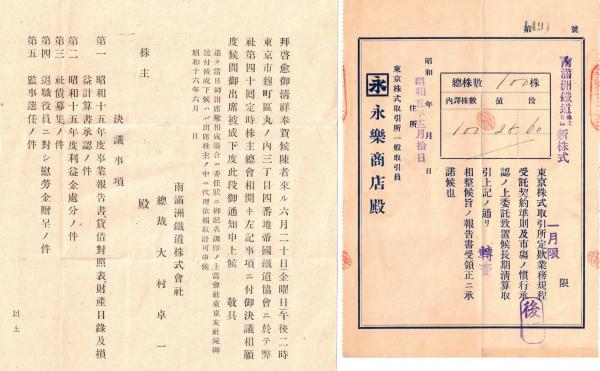 拜啓愈御清祥奉賀候陳者來ル六月二十日(金曜日)午後二時
東京市麴町區丸ノ内三丁目四番地帝國鐵道協會ニ於テ弊
社第四十回定時株主總會相開キ左記事項ニ付御決議相願
度候間御出席被成下度此段御通知申上候 敬具
追テ當日御出席難相成場合ハ委任狀ニ御記名調印ノ上當會社東京支社宛御
送付被成下候ハバ出席株主ノ中ニ代理依賴取計可申候
昭和十六年六月 日
南滿洲鐵道株式會社
總裁 大村卓一
株主 殿
決議事項
第一 昭和十五年度事業報告書貸借對照表財產目錄及損
益計算書承認ノ件
第二 昭和十五年度利益金處分ノ件
第三 社債募集ノ件
第四 退職役員ニ對シ慰勞金贈呈ノ件
第五 監事選任ノ件
以上
第 號
南滿洲鐵道 新株式
總株數 100株
內譯株數 値段
100 28.60
限
一月限
東京株式取引所定款業務規程
受託契約準則及市場ノ慣行承
認ノ上委託致置候長期淸算取
引上記ノ通リ 轉賣
相整候旨ノ報告書受領正ニ承
諾候也
後
昭和 年 月 日
昭和五年十二月拾日
住所
東京株式取引所一般取引員
永 永樂商店殿